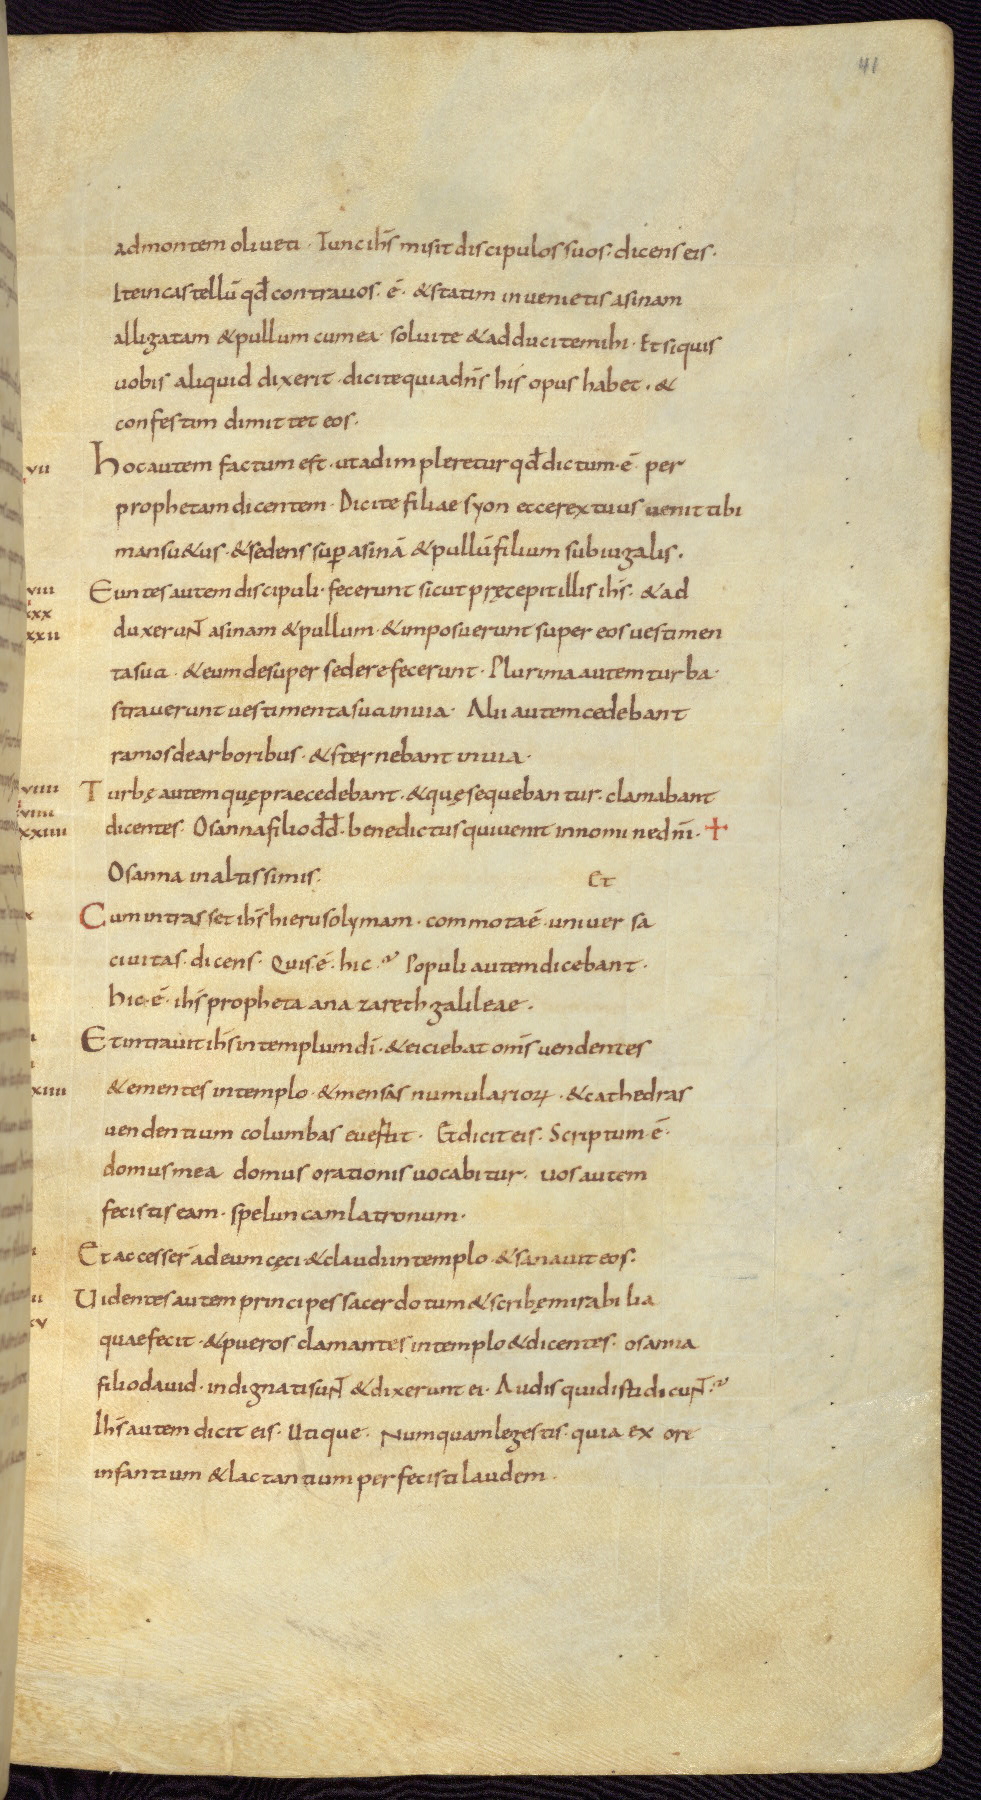 41
ad montem oliueti · Tunc ihs̄ misit discipulos suos · dicens eis ·
Ite in castellū qd̄ contra uos · ē · & statim inuenietis asinam
alligatam & pullum cum ea · soluite & adducite mihi · Et si quis
uobis aliquid dixerit · dicite quia dn̄s his opus habet · &
confestim dimittet eos ·
vii Hoc autem factum est · ut adimpleretur qd̄ dictum · ē per
prophetam dicentem · Dicite filiae syon ecce rex tuus uenit tibi
mansu&us · & sedens sup̱ asinā & pullū filium subiugalis ·
viii Euntes autem discipuli · fecerunt sicut pręcepit illis ihs̄ · & ad
xxx
xxii duxerun̄t asinam & pullum · & imposuerunt super eos uestimen
ta sua · & eum desuper sedere fecerunt · Plurima autem turba ·
strauerunt uestimenta sua in uia · Alii autem cedebant
ramos de arboribus · & sternebant in uia ·
viiii Turbę autem quę praecedebant · & quę sequebantur · clamabant
viiii
xxiiii dicentes · Osanna filio dd̄ · benedictus qui uenit in nomine dn̄i · +
Osanna in altissimis · Et
x Cum intrasset ihs̄ hierusolymam · commota ē · uniuersa
ciuitas · dicens · Quis · ē · hic ·? Populi autem dicebant ·
hic · ē · ihs̄ propheta a nazareth galileae ·
Et intrauit ihs̄ in templum dī · & eiciebat omn̄s uendentes
xiiii & ementes in templo · & mensas numularioꝝ · & cathedras
uendentium columbas euertit · Et dicit eis · Scriptum · ē ·
domus mea domus orationis uocabitur · uos autem
fecistis eam · speluncam latronum ·
Et accesser̄ ad eum cęci · & claudi in templo · & sanauit eos ·
ii Uidentes autem principes sacerdotum & scribę mirabilia
xv quae fecit · & pueros clamantes in templo & dicentes · osanna
filio dauid · indignati sun̄t & dixerunt ei · Audis quid isti dicun̄t ·?
Ihs̄ autem dicit eis · Utique · Numquam legestis · quia ex ore
infantium & lactantium perfecisti laudem ·